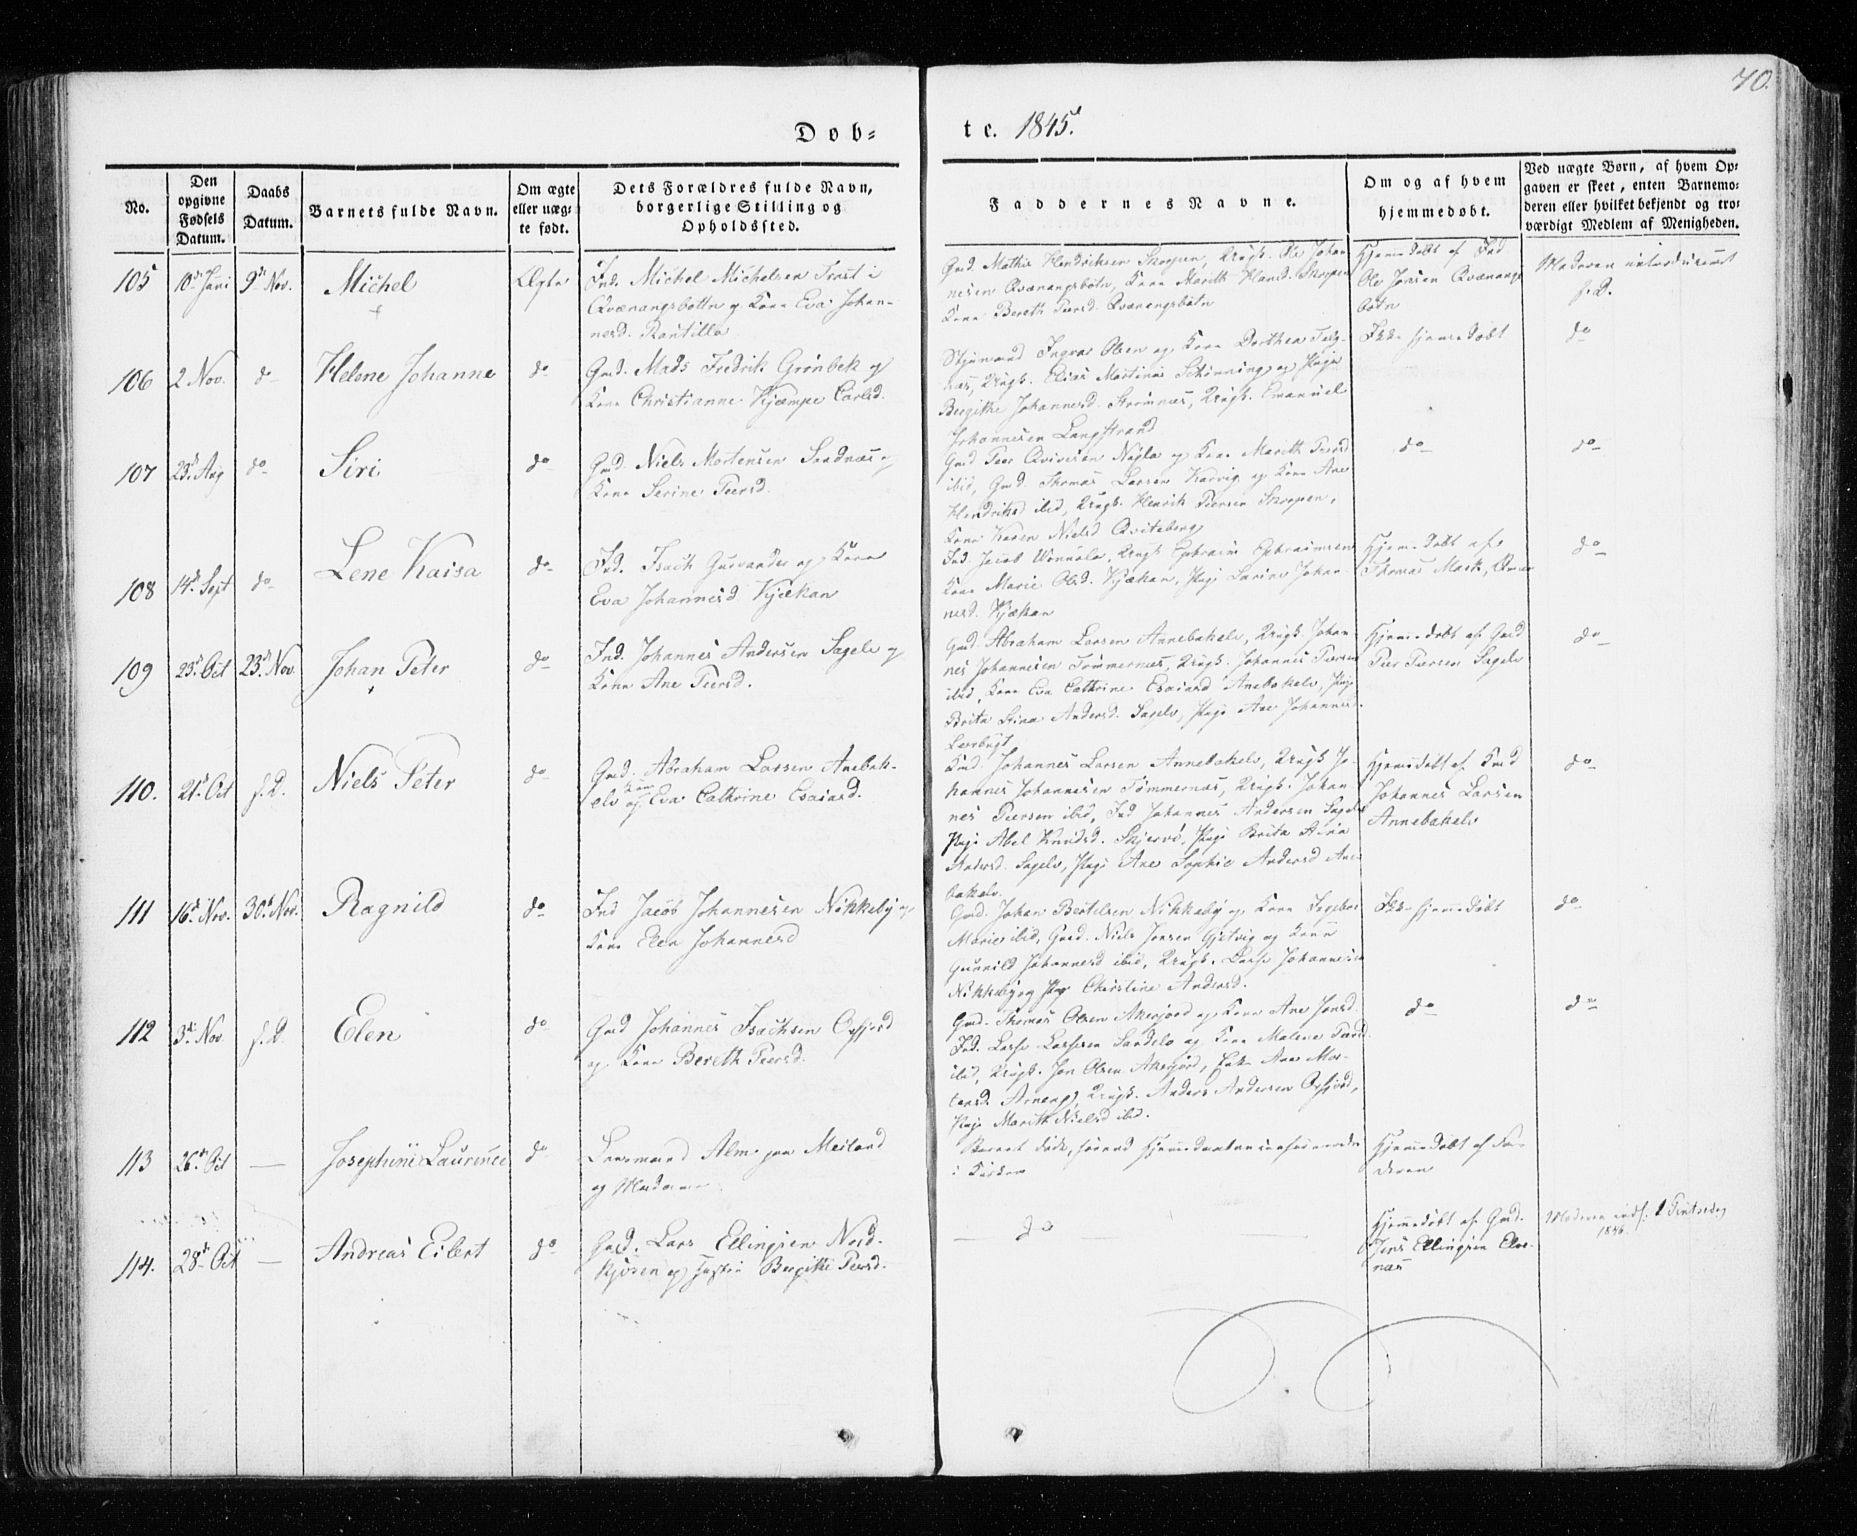 70.
Dob= te. 1845.
No.
Den opgivne Fødsels Datum.
Daabs Datum.
Barnets fulde Navn.
Om ægte eller uæg= te født.
Dets Forældres fulde Navn, borgerlige Stilling og Opholdssted.
Faddernes Navne.
Om og af hvem hjemmedøbt.
Ved uægte Børn, af hvem Op= gaven er skeet, enten Barnemo= deren eller hvilket bekjendt og tro= værdigt Medlem af Menigheden.
105 10de Juni 9de Nov. Michel Ægte
Ind. Michel Michelsen i
Qvænangsbotten og Kone Eva Johan-
nesd. Rantilla
Gmd. Mathis Hendrichsen Skorpen, Ungk. Ole Johan
nesen Qvænangsbotn, Kone Marith Hansd. Skorpen
Kone Bereth Peersd. Qvænangsbotn
Hjemmedøbt af Ind
Ole Jonsen Qvænangs
botn
Moderen introduceret
s. D.
106 2 Nov. do Helene Johanne do
Gmd. Mads Fredrik Grønbek og
Kone Christianne Kjæmpe Carlsd.
Ingvar Olsen og Kone Dorthea
næs, Ungk. Elias Martinus Schønning og Pige
Bergithe Johannesd. Strømnæs, Ungk. Emanuel
Johannesen Langstrand
Ikke hjemmedøbt
do
107 23de Aug do Siri do
Gmd. Niels Mortensen Sandnæs og
Kone Serine Peersd.
Gmd Peer Qvivesen Nøgla og Kone Marith Peersd
ibid, Gmd Thomas Larsen Karvig og Kone Ane
Hendriksd ibid, Ungk. Henrik Peersen Skorpen,
Kone Karen Nielsd Qviteberg
do
do
108 14de Sept do Lene Kaisa do
Ind. Isach og Kone
Eva Johannesd Kjækan
Ind. Jacob Ungk Ephraim Ephraimsen
Kone Marie Olsd. Kjækan, Pige Johan-
nesd. Kjækan
Hjemmedøbt af
Thomas Mack,
do
109 23de Oct 23de Nov. Johan Peter do
Ind. Johannes Andersen Sagelv og
Kone Ane Peersd.
Gmd Abraham Larsen Annebakelv, Ungk. Johan
nes Johannesen Tømmernæs, Ungk. Johannes Peersen
ibid, Kone Eva Cathrine Esaiasd Anebakelv, Pige
Brita Stina Andersd. Sagelv, Pige Ane Johannesd.
Leerbugt
Hjemmedøbt af Gmd
Peer Peersen Sagelv
do
110. 21de Oct s. D. Niels Peter do
Gmd. Abraham Larsen Anebak-
elv og Kone Eva Cathrine Esaiasd.
Gmd Johannes Larsen Annebakelv, Ungk Jo-
hannes Johannesen Tømmernæs, Ungk. Johan
nes Peersen ibid, Ind Johannes Andersen Sagelv
Pige Abel Knudsd. Skjervø, Pige Brita Stina
Andersd. Sagelv, Pige Ane Sophie Andersd Ane
bakelv.
Hjemmedøbt af Gmd
Johannes Larsen
Annebakelv
do
111 16de Nov. 30de Nov. Ragnild do
Ind Jacob Johannesen Nikkeby og
Kone Elen Johannesd
Gmd. Johan Bertelsen Nikkeby og Kone Ingebor
Marie ibid, Gmd. Niels Jensen og Kone
Gunnild Johannesd ibid, Ungk. Lars Johannesen
Nikkeby og Pige Christine Andersd.
Ikke hjemmedøbt
do
112 3de Nov s. D. Elen do
Gmd Johannes Isachsen Oxfjord
og Kone Bereth Peersd.
Gmd. Thomas Olsen Akerfjord og Kone Ane Jonsd.
Ind. Lars Larsen Sandelv og Kone Malene
ibid, Ungk. Jon Olsen Akerfjord, Enke Ane Mor-
tensd. Ungk. Anders Andersen Oxfjord,
Pige Marith Nielsd ibid.
do
do
113 26de Oct — Josephine Laurence do
Lensmand Alm paa Meiland
og Madamme
Barnet døde, førend Hjemmedaaben
i Kirken
Hjemmedøbt af Fa-
deren
114. 28de Oct — Andreas Eilert do
Gmd. Lars Ellingsen Nord-
kjosen og Hustru Bergithe Peersd.
— do —
Hjemmedøbt af Gmd.
Jens Ellingsen
næs
Moderen indl: 1 Pintsedag
1846.